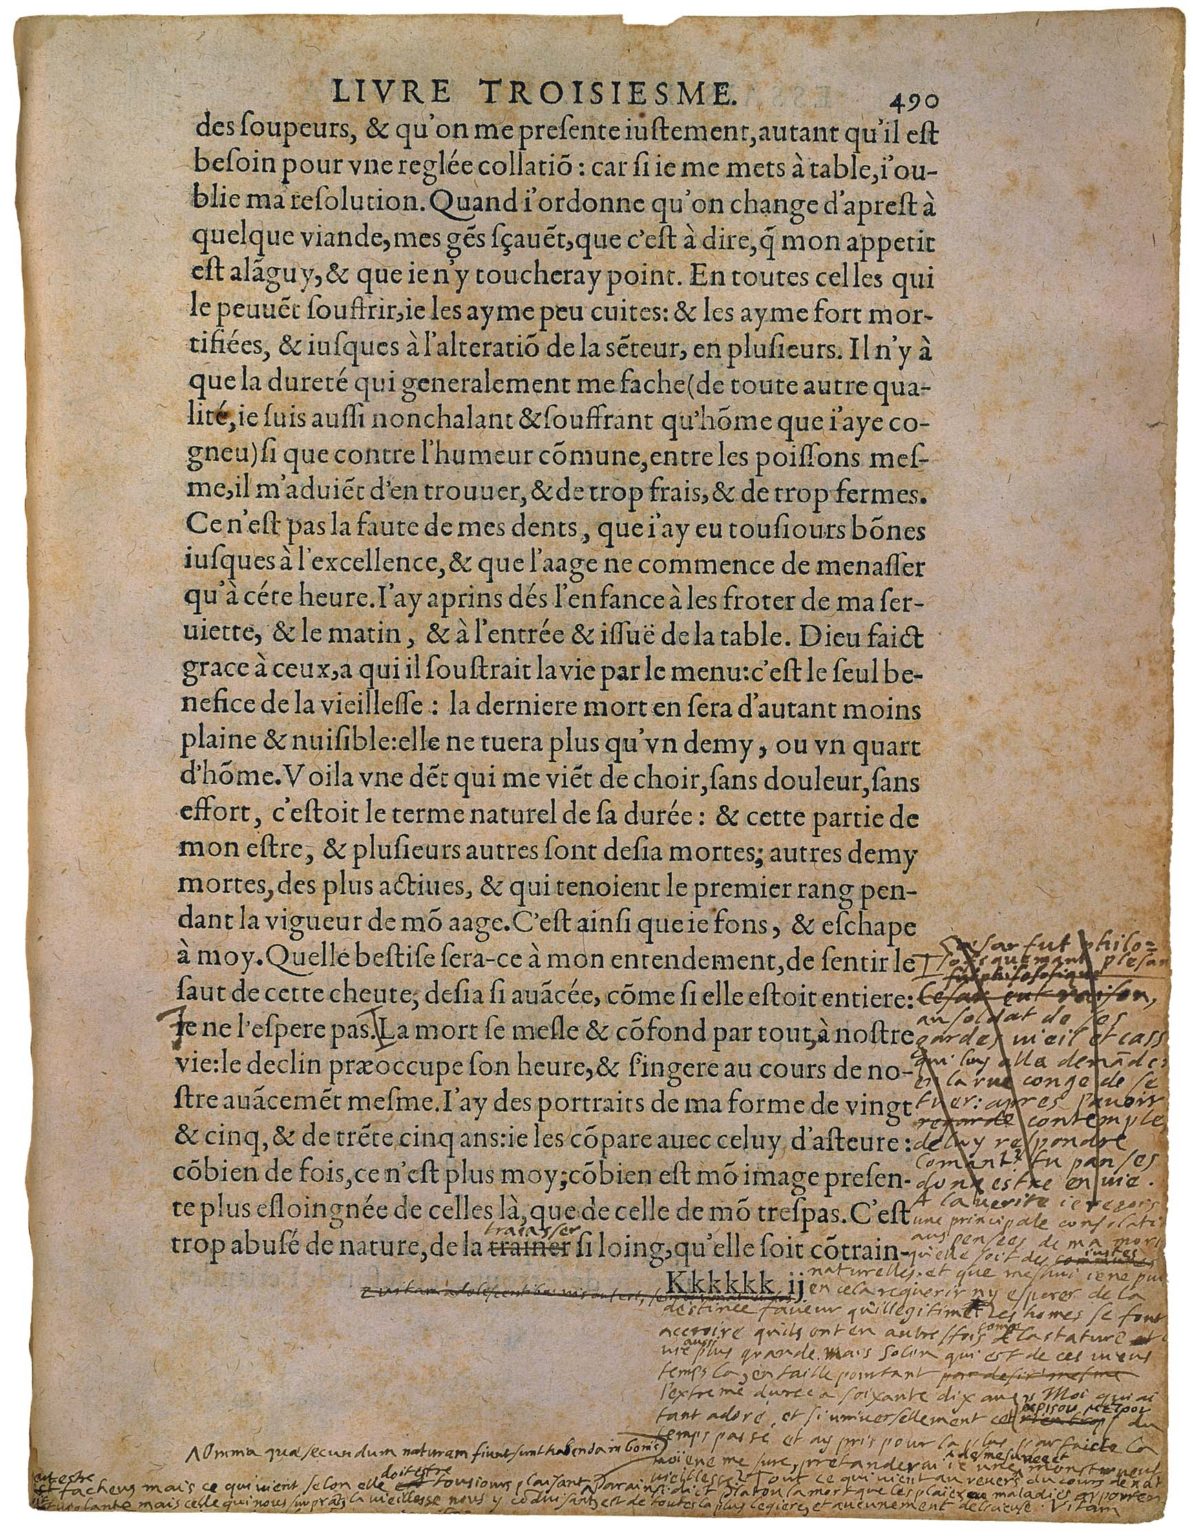 LIVRE TROISIESME. 490
des soupeurs, & qu'on me presente iustement, autant qu'il est
besoin pour vne reglée collatiō : car si ie me mets à table, i'ou-
blie ma resolution. Quand i'ordonne qu'on change d'aprest à
quelque viande, mes gēs sçauēt, que c'est à dire, q̃ mon appetit
est alãguy, & que ie n'y toucheray point. En toutes celles qui
le peuuēt souffrir, ie les ayme peu cuites: & les ayme fort mor-
tifiées, & iusques à l'alteratiō de la sēteur, en plusieurs. Il n'y à
que la dureté qui generalement me fache (de toute autre qua-
lité, ie suis aussi nonchalant & souffrant qu'hōme que i'aye co-
gneu) si que contre l'humeur cōmune, entre les poissons mes-
me, il m'aduiēt d'en trouuer, & de trop frais, & de trop fermes.
Ce n'est pas la faute de mes dents, que i'ay eu tousiours bōnes
iusques à l'excellence, & que l'aage ne commence de menasser
qu'à céte heure. I'ay aprins dés l'enfance à les froter de ma ser-
uiette, & le matin, & à l'entrée & issuë de la table. Dieu faict
grace à ceux, a qui il soustrait la vie par le menu: c'est le seul be-
nefice de la vieillesse : la derniere mort en sera d'autant moins
plaine & nuisible: elle ne tuera plus qu'vn demy, ou vn quart
d'hōme. Voila vne dēt qui me viēt de choir, sans douleur, sans
effort, c'estoit le terme naturel de sa durée : & cette partie de
mon estre, & plusieurs autres sont desia mortes; autres demy
mortes, des plus actiues, & qui tenoient le premier rang pen-
dant la vigueur de mō aage. C'est ainsi que ie fons, & eschape
à moy. Quelle bestise sera-ce à mon entendement, de sentir le
saut de cette cheute, desia si auãcée, cōme si elle estoit entiere:
Ie ne l'espere pas. La mort se mesle & cōfond par tout, à nostre
vie: le declin præoccupe son heure, & s'ingere au cours de no-
stre auãcemēt mesme. I'ay des portraits de ma forme de vingt
& cinq, & de trēte cinq ans: ie les cōpare auec celuy d'asteure:
cōbien de fois, ce n'est plus moy; cōbien est mō image presen-
te plus esloingnée de celles là, que de celle de mō trespas. C'est
tracasser
trop abusé de nature, de la trainer si loing, qu'elle soit cōtrain-
Kkkkkk ij
Cæsar fut philo=
Cesar eut raison,
un soldat de ses
gardes vieil et cass
qui luy alla demãde
en la rue conge de se
tuer: apres l'avoir
regarde contemple
de luy respondre
Comant? tu panses
donq estre en vie.
A la verite ie reçois
une principale consolati
aus pensees de ma mort
qu'elle soit des communes
iustes
naturelles. et que meshui ie ne puis
en cela requerir ny esperer de la
destinee faveur qu'illegitime. Les homes se font
accroire qu'ils ont eu autresfois come la stature et
aussi
vie plus grande. Mais Solon qui est de ces vieus
temps la, en taille pourtant par desir mesme
l'extreme durée a soixante dix ans. Moi qui ai
tant adoré, et si universellement cet du
temps passé et ay pris pour la plus parfaicte la
moiene mesure, pretanderai ie une
vieillesse? Tout ce qui vient au revers du cours de nat
Omnia quæ secundum naturam fiunt sunt habenda in bonis
estre
facheus mais ce qui vient selon elle doit estre tousiours plaisant. Par ainsi dict Platon la mort que les plaies ou maladies apportent
violante mais celle qui nous surprãt la vieillesse nous y conduisant est de toutes la plus legiere, et aucunement delicieuse. Vitam